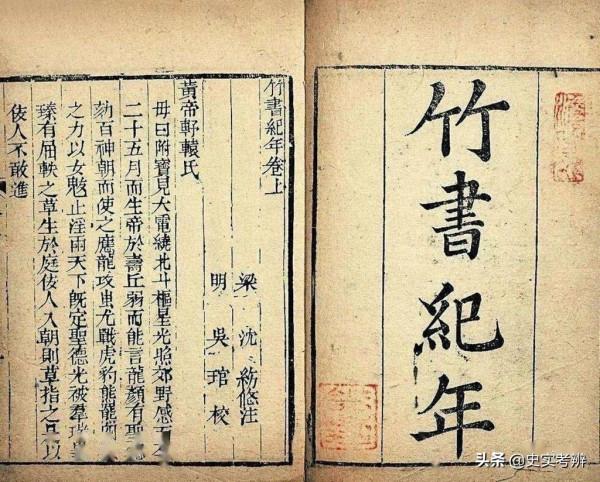 竹書紀年
竹書紀年卷上
梁 沈約附注
明 吳琯校
黃帝軒轅氏
母曰附寶見大電繞北斗樞星光照郊野感
二十五月而生帝於壽丘弱而能言龍顏有聖
劾百神朝而使之應龍攻蚩尤戰虎豹熊羆
之力以女魃止淫雨天下旣定聖德光被羣瑞
臻有屈軼之草生於庭佞人入朝則草指之是以
佞人不敢進
头条 @史实考辨